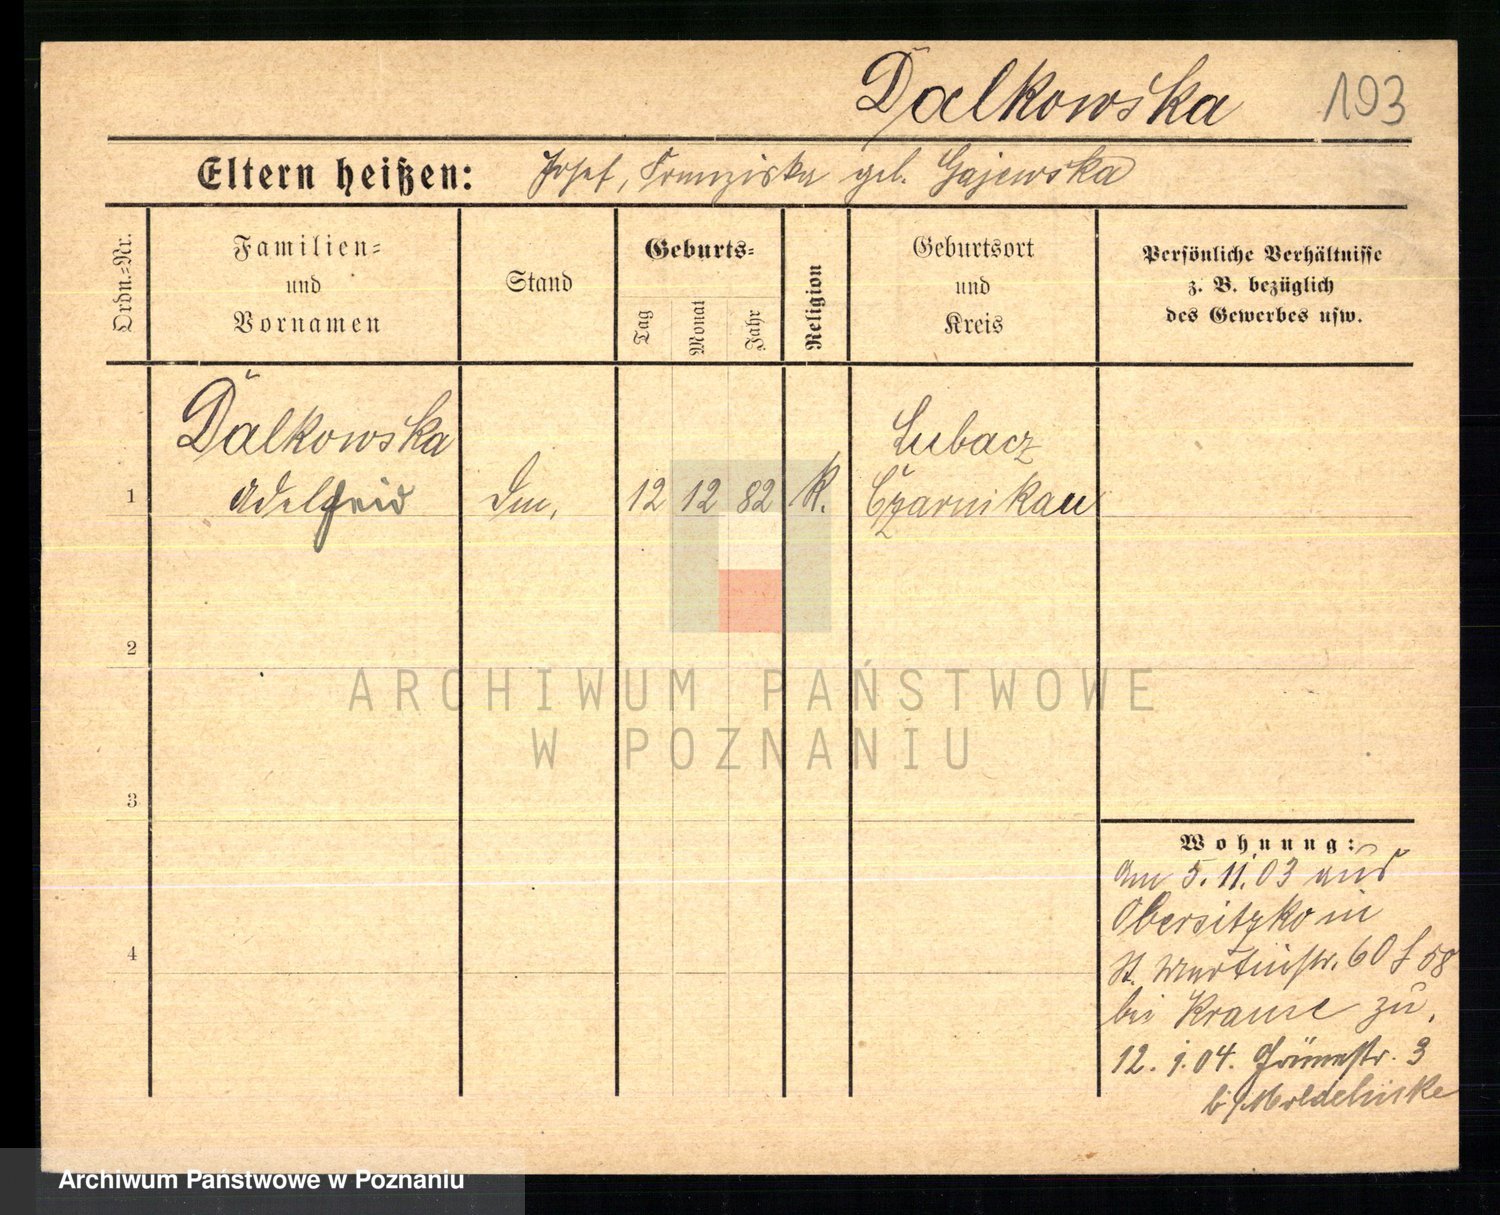 Dalkowska 193
Eltern heißen: Josef, Franziska geb. Gajewska
Ordn.=Nr.
Familien=
und
Vornamen
Stand
Geburts=
Tag
Monat
Jahr
Religion
Geburtsort
und
Kreis
Persönliche Verhältnisse
z. B. bezüglich
des Gewerbes usw.
Dalkowska Lubacz
1 Adelheid 12 12 82 K. Czarnikau
2
3
4
Wohnung:
Am 5. 11. 03 aus
Obersitzko in
St. Martinstr. 60 58
bei Krause zu.
12. 1. 04. 3
b/
ARCHIWUM PAŃSTWOWE
W POZNANIU
Archiwum Państwowe w Poznaniu